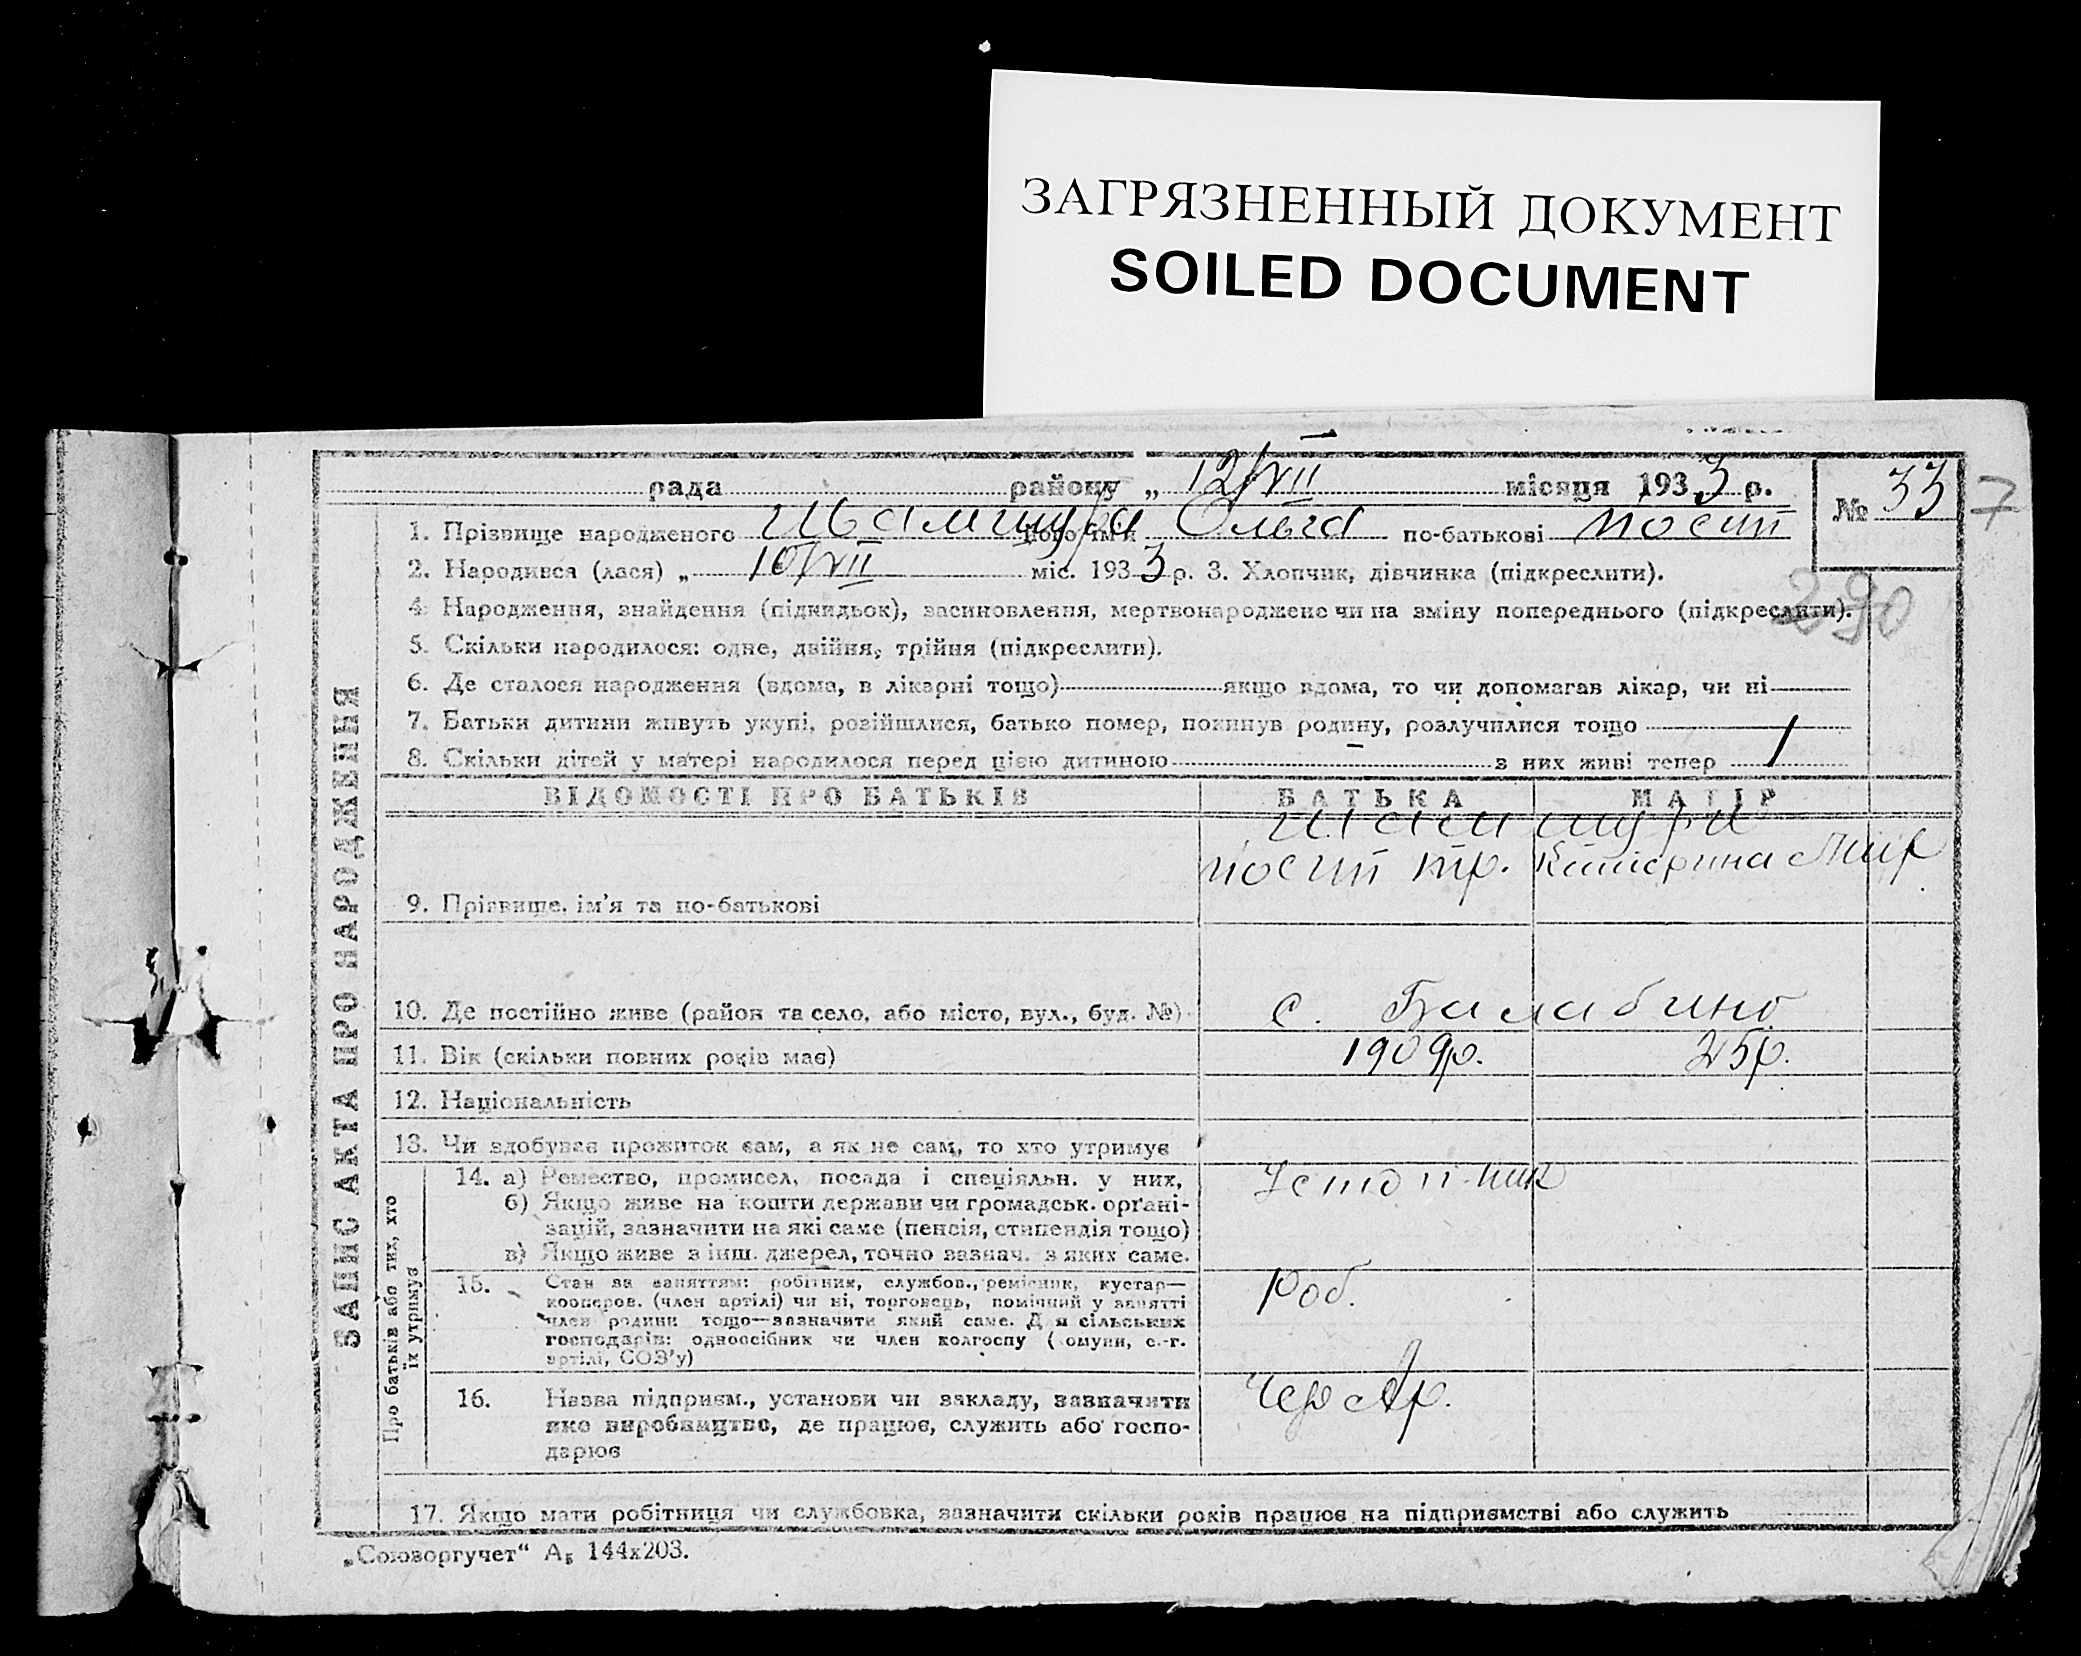 ЗАГРЯЗНЕННЫЙ ДОКУМЕНТ
SOILED DOCUMENT
рада району „ 12/VII місяця 1933 р.
№ 33
7
1. Прізвище народженого його ім'я Ольга по-батькові Йосип
2. Народився (лася) „ 10/VII міс. 1933 р. 3. Хлопчик, дівчинка (підкреслити).
290
4. Народження, знайдення (підкидьок), засиновлення, мертвонароджене чи на зміну попереднього (підкреслити).
5. Скільки народилося: одне, двійня, трійня (підкреслити).
6. Де сталося народження (вдома, в лікарні тощо) якщо вдома, то чи допомагав лікар, чи ні
7. Батьки дитини живуть укупі, розійшлися, батько помер, покинув родину, розлучилися тощо
8. Скільки дітей у матері народилося перед цією дитиною – з них живі тепер 1
ЗАПИС АКТА ПРО НАРОДЖЕННЯ
ВІДОМОСТІ ПРО БАТЬКІВ БАТЬКА МАТІР
Йосип Тр. Катерина
9. Прізвище, ім'я та по-батькові
10. Де постійно живе (район та село, або місто, вул., буд. №) с. Балабино
11. Вік (скільки повних років має) 1909р. 25р.
12. Національність
13. Чи здобуває прожиток сам, а як не сам, то хто утримує
Про батьків або тих, хто їх утримує
14. а) Ремество, промисел, посада і спеціяльн. у них,
б) Якщо живе на кошти держави чи громадськ. орґані-
зацій, зазначити на які саме (пенсія, стипендія тощо)
в) Якщо живе з інш. джерел, точно зазнач. з яких саме.
15. Стан за заняттям: робітник, службов., ремісник, кустар—
кооперов. (член артілі) чи ні, торговець, помічний у занятті
член родини тощо—зазначити який саме. Для сільських
господарів: одноосібник чи член колгоспу (комуни, с.-г.
артілі, СОЗ'у)
Роб.
16. Назва підприєм., установи чи закладу, зазначити
яко виробництво, де працює, служить або госпо-
дарює
17. Якщо мати робітниця чи службовка, зазначити скільки років працює на підприємстві або служить
„Союзоргучет“ А₅ 144х203.